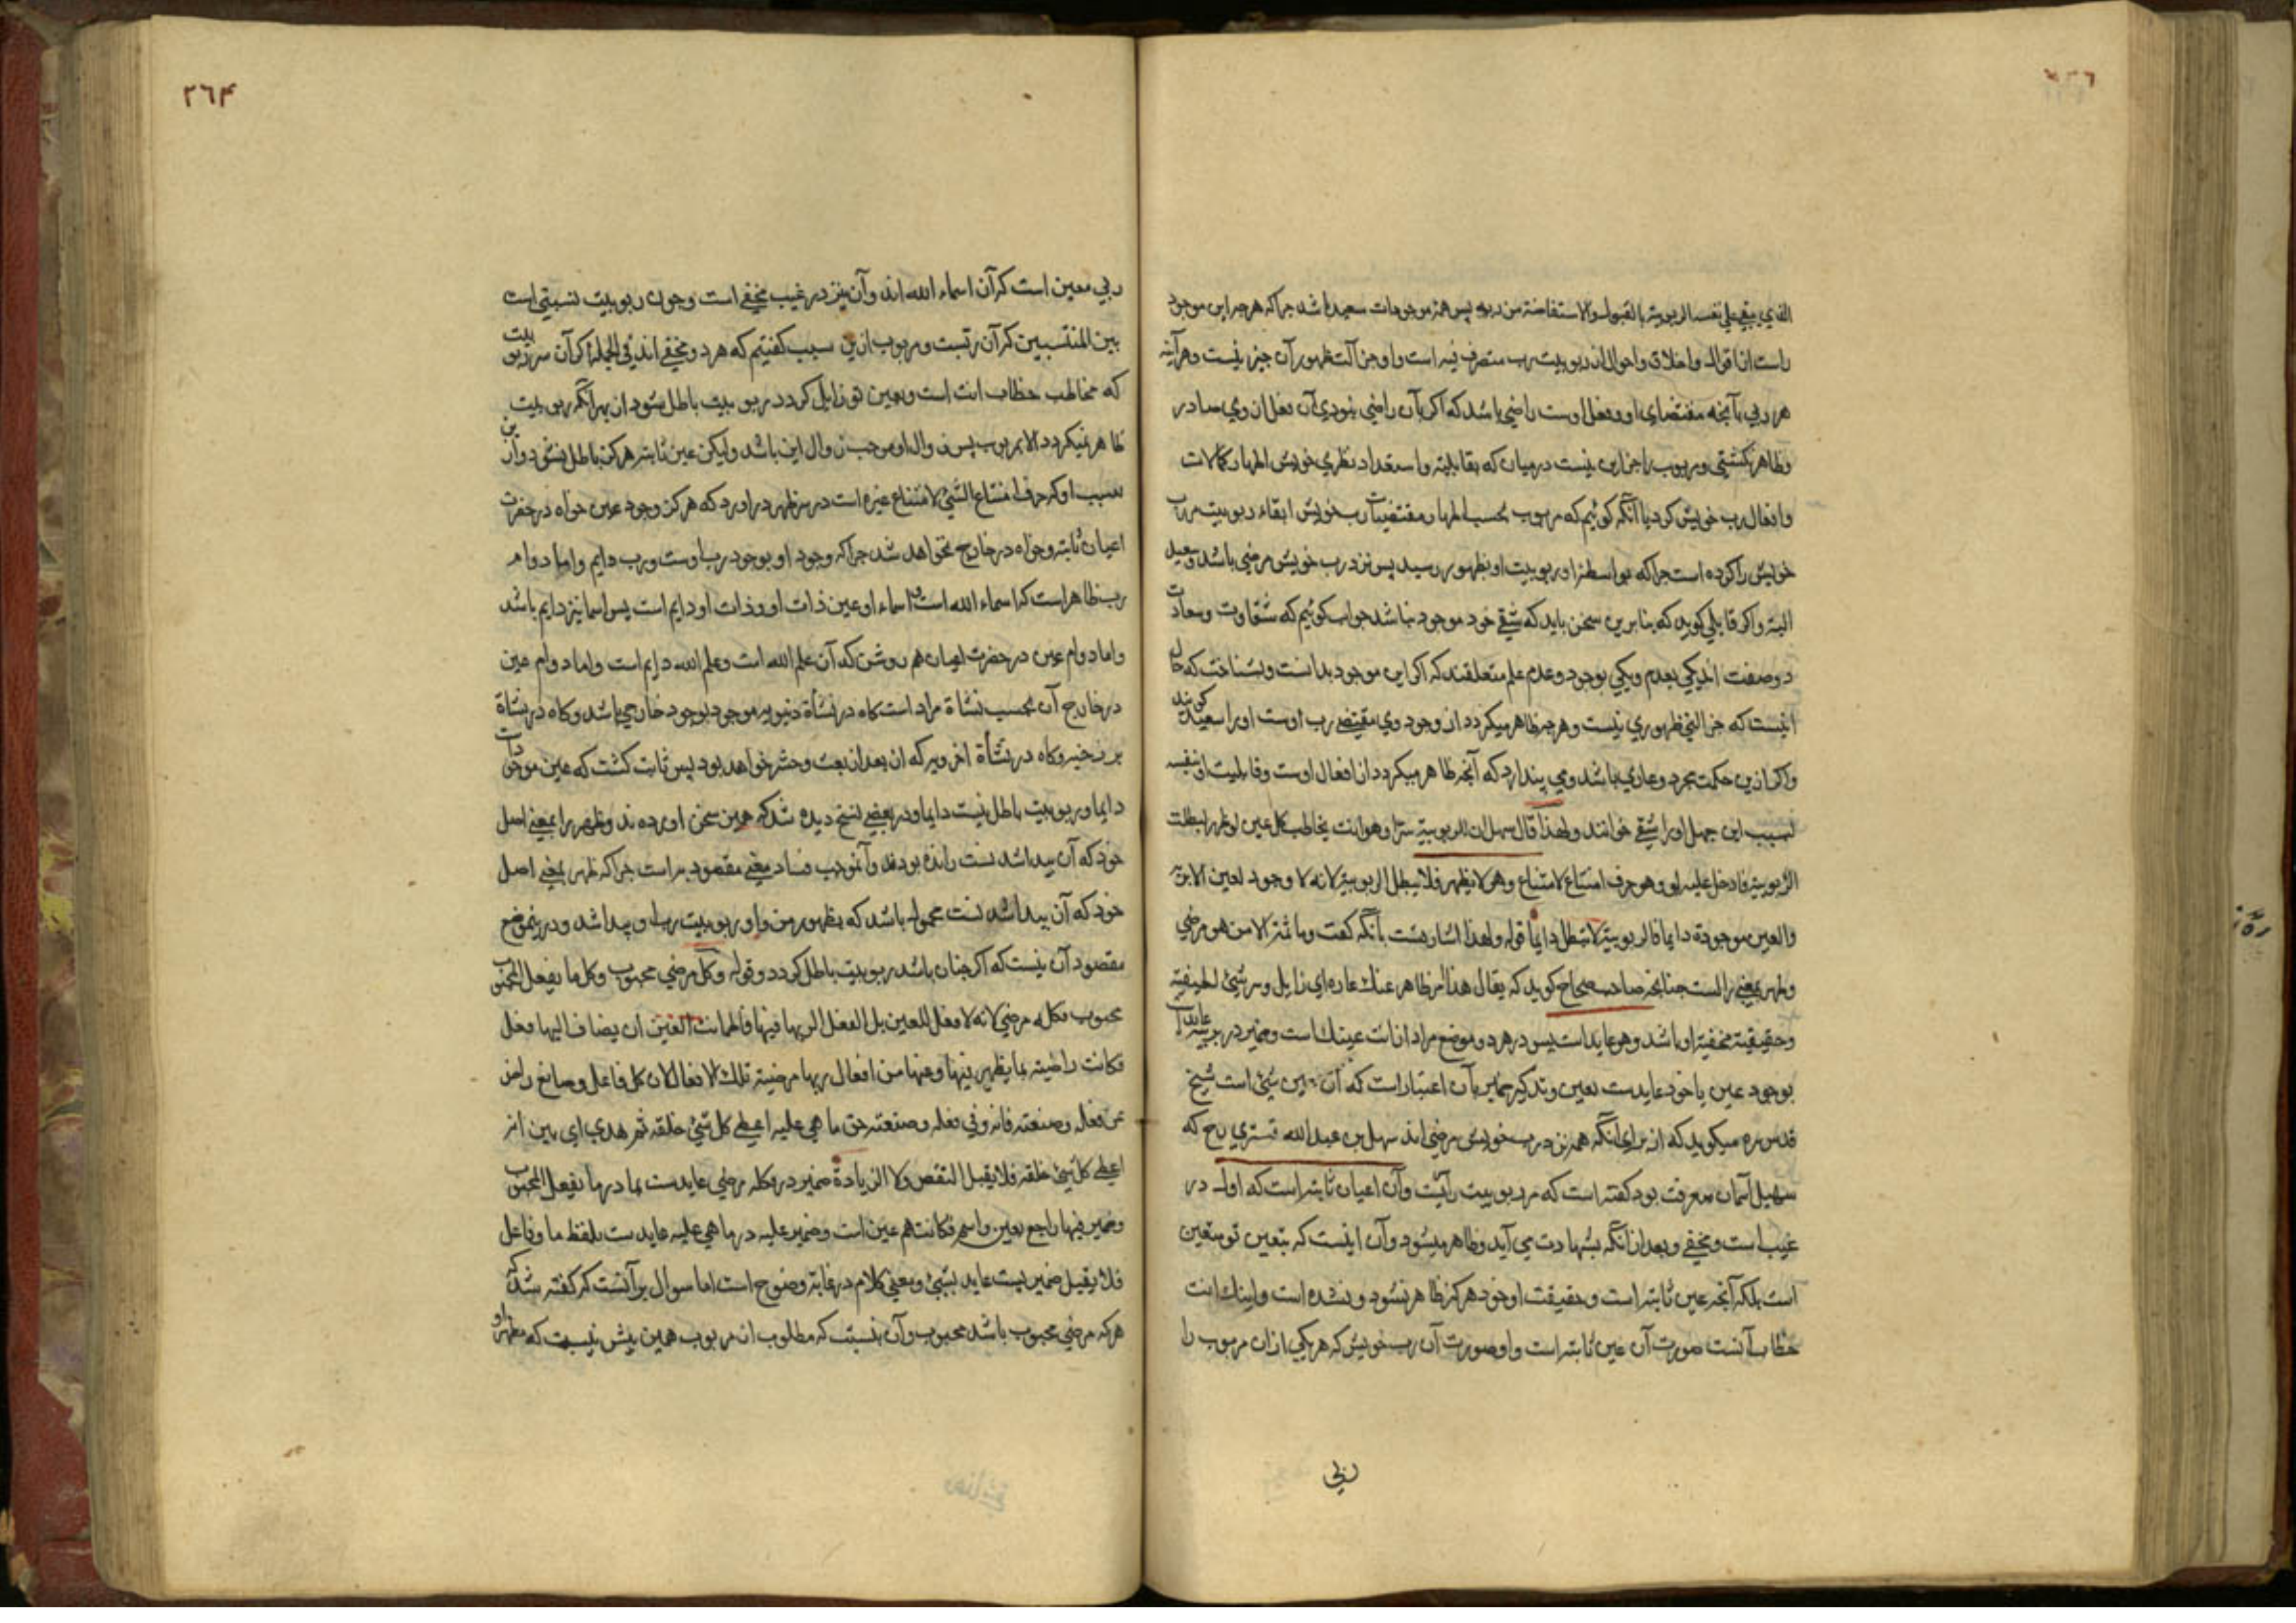 الذي يبقي علي نفسه الربوبية بالقبول والاستفاضة من ربه پس همه موجودات سعيد باشد جراكه هرجه اين موجود
راست از اقوال واخلاق واحوال ان ربوبيت رب متصرف فيه است واو جز آلت ظهور آن جيز نيست وهرآينه
هر ربي بآنجه مقتضاي او وفعل اوست راضي باشد كه اكر بآن راضي نبودي آن فعل ازوي صادر
وظاهر نكشتي ومربوب را جز اين نيست درميان كه بقابليه واستعداد نظري خويش اظهار كمالات
وافعال رب خويش كرد يا آنكه كوئيم كه مربوب بحسب اظهار مقتضيات رب خويش ابقاء ربوبيت مر رب
خويش را كرده است جراكه بواسطه او ربوبيت او بظهور رسيد پس نزد رب خويش مرضي باشد وسعيد
البته واكر قايلي كويد كه بنابرين سخن بايد كه شقي خود موجود نباشد جواب كوئيم كه شقاوت وسعادت
دوصفت اند يكي بعدم ويكي بوجود وعدم علم متعلقند كه اكر اين موجود بدانست وبشناخت كه حال
اينست كه جز التي ظهوري نيست وهرجه ظاهر ميكردد از وجود وي مقتضي رب اوست اورا سعيد كويند
واكر ازين حكمت مجرد وعاري باشد ومي پندارد كه آنجه ظاهر ميكردد از افعال اوست وقابليت او بنفسه
بسبب اين جهل اورا شقي خوانند ولهذا قال سهل ان للربوبية سرا وهو انت يخاطب كل عين لو ظهر لبطلت
الربوبية فادخل عليه لو وهو حرف امتناع لامتناع وهو لا يظهر فلا يبطل الربوبية لانه لا وجود لعين الا بربه
والعين موجودة دايما فالربوبية لا تبطل دايما قوله ولهذا اشارتست بآنكه كفت وما ثمة الا من هو مرضي
وظهر بمعني زالست جنانجه صاحب صحاح كويد كه يقال هذا امر ظاهر عنك عاره اي زايل وسر شيئ لطيفيه
وحقيقية مخفيه او باشد وهو عايد است پس درهر دو موضع مراد از انت عينك است وضمير در بربه عايد است
بوجود عين يا خود عايدست بعين وتذكير ضمير بآن اعتبار است كه آن عين شيئ است شيخ
قدس سره ميكويد كه از براي آنكه همه نزد رب خويش مرضي اند سهل بن عبد الله تستري رح كه
سهيل آسمان معرفت بود كفته است كه مر ربوبيت را سريست وآن اعيان ثابته است كه اول در
غيب است ومخفي وبعد از آنكه بشهادت مي آيد وظاهر ميشود وآن اينست كه بتعين تو متعين
است بلكه آنجه عين ثابته است وحقيقت او خود هركز ظاهر نشود ونشده است واينك انت
خطاب آنست صورت آن عين ثابته است واو صورت آن رب خويش كه هر يكي ازان مربوب را
ربي
٢٦٤
ربي معين است كه آن اسماء الله اند وآن نيز در غيب مخفي است وجون ربوبيت نسبتي است
بين المنتسبين كه آن رتبت ومربوب ازين سبب كفتيم كه هر دو مخفي اند في الجمله اكر آن سر ربوبيت
كه مخاطب خطاب انت است وبعين تو زايل كردد ربوبيت باطل شود از بهر آنكه ربوبيت
ظاهر نميكردد الا بمربوب پس زوال او موجب زوال اين باشد وليكن عين ثابته هركز باطل نشود وازين
سبب او كه حرف امتناع الشئ لامتناع غيره است در سر ظهر در اورد كه هركز وجود عين خواه در حضرت
اعيان ثابته وخواه در خارج نخواهد شد جراكه وجود او بوجود رب اوست ورب دايم واما دوام
رب ظاهر است كه اسماء الله است واسماء او عين ذات او وذات او دايم است پس اسما نيز دايم باشد
واما دوام عين در حضرت اعيان هم روشن كه آن علم الله است وعلم الله دايم است واما دوام عين
در خارج آن بحسب نشاة مراد است كاه در نشاة دنيويه موجود بوجود خارجي باشد وكاه در نشاة
برزخيه وكاه در نشأة اخرويه كه ان بعد از بعث وحشر خواهد بود پس ثابت كشت كه عين موجود است
دايما وربوبيت باطل نيست دايما ودر بعضي نسخ ديده شد كه همين سخن آورده اند وظهر را بمعني اصل
خود كه آن پيدا شدنست رانده بودند وآن موجب فساد معني مقصود بر است جراكه ظهر بمعني اصل
خود كه آن پيدا شدنست محمول باشد كه بظهور من واو ربوبيت رب او پيدا شد ودرينموضع
مقصود آن نيست كه اكر جنان باشد ربوبيت باطل كردد وقوله وكل مرضي محبوب وكل ما يفعل المحبوب
محبوب فكله مرضي لانه لا فعل للعين بل الفعل لربها فيها فاطمانت العين ان يضاف اليها فعل
فكانت راضيه بما يظهر فيها وعنها من افعال ربها مرضية تلك الافعال لان كل فاعل وصانع راض
عن فعله وصنعته فانه وفي فعله وصنعته حق ما هي عليه اعطي كل شئ خلقه ثم هدي اي بين انه
اعطي كل شئ خلقه فلا يقبل النقص ولا الزيادة ضمير در فكله مرضي عايدست بما در ما يفعل المحبوب
وضمير فيها راجع بعين واسم فكانت هم عين است وضمير عليه در ما هي عليه عايدست بلفظ ما وفاعل
فلا يقبل ضمير يست عايد بشئ ومعني كلام در غايه وضوح است اما سوال بر آنست كه كفته شد كه
هركه مرضي محبوب باشد محبوب وآن نسبت كه مطلوب از مربوب همين بيش نيست كه مظهر او